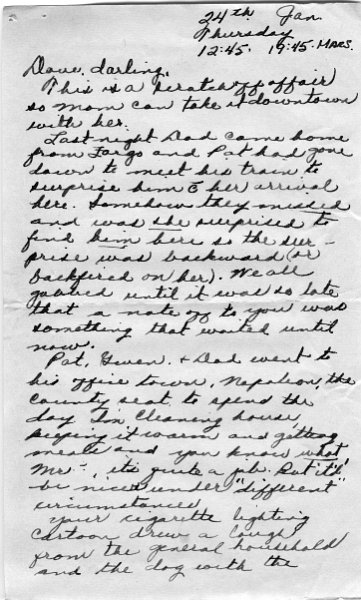 24th Jan.
Thursday
12:45. 19:45-Mars.
Dave, darling,
This is a scratch off affair
so Mom can take it downtown
with her.
Last night Dad came home
from Fargo and Pat had gone
down to meet his train to
surprise him & her arrival
here. Somehow they missed
and was she surprised to
find him here so the sur-
prise was backward (or
backfired on her). We all
gabbed until it was so late
that a note off to you was
something that waited until
now.
Pat, Gwen. & Dad went to
his office town, Napoleon, the
county seat to spend the
day. I'm cleaning house,
keeping it warm and getting
meals and you know what
Mr-, it's quite a job. But it'll
be nicer under "different"
circumstances
Your cigarette lighting
cartoon drew a laugh
from the general household
and the dog with the